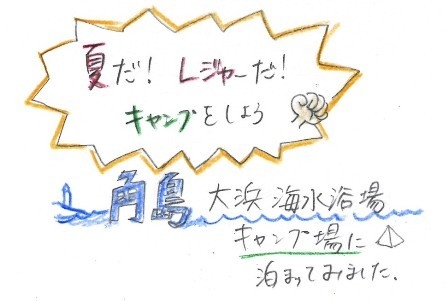 夏だ! レジャーだ!
キャンプをしよう
角島 大浜海水浴場
キャンプ場に
泊まってみました.